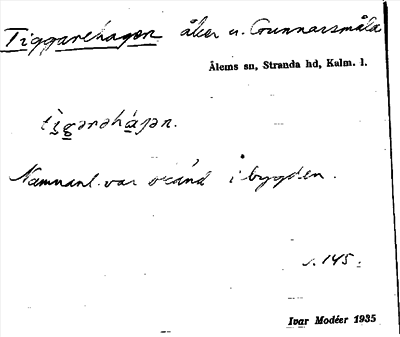 Tiggarehagen åker u. Gunnarsmåla
Ålems sn, Stranda hd, Kalm. l.
tìgərəháɡən.
Namnanl. var okänd i bygden.
s. 145.
Ivar Modéer 1935